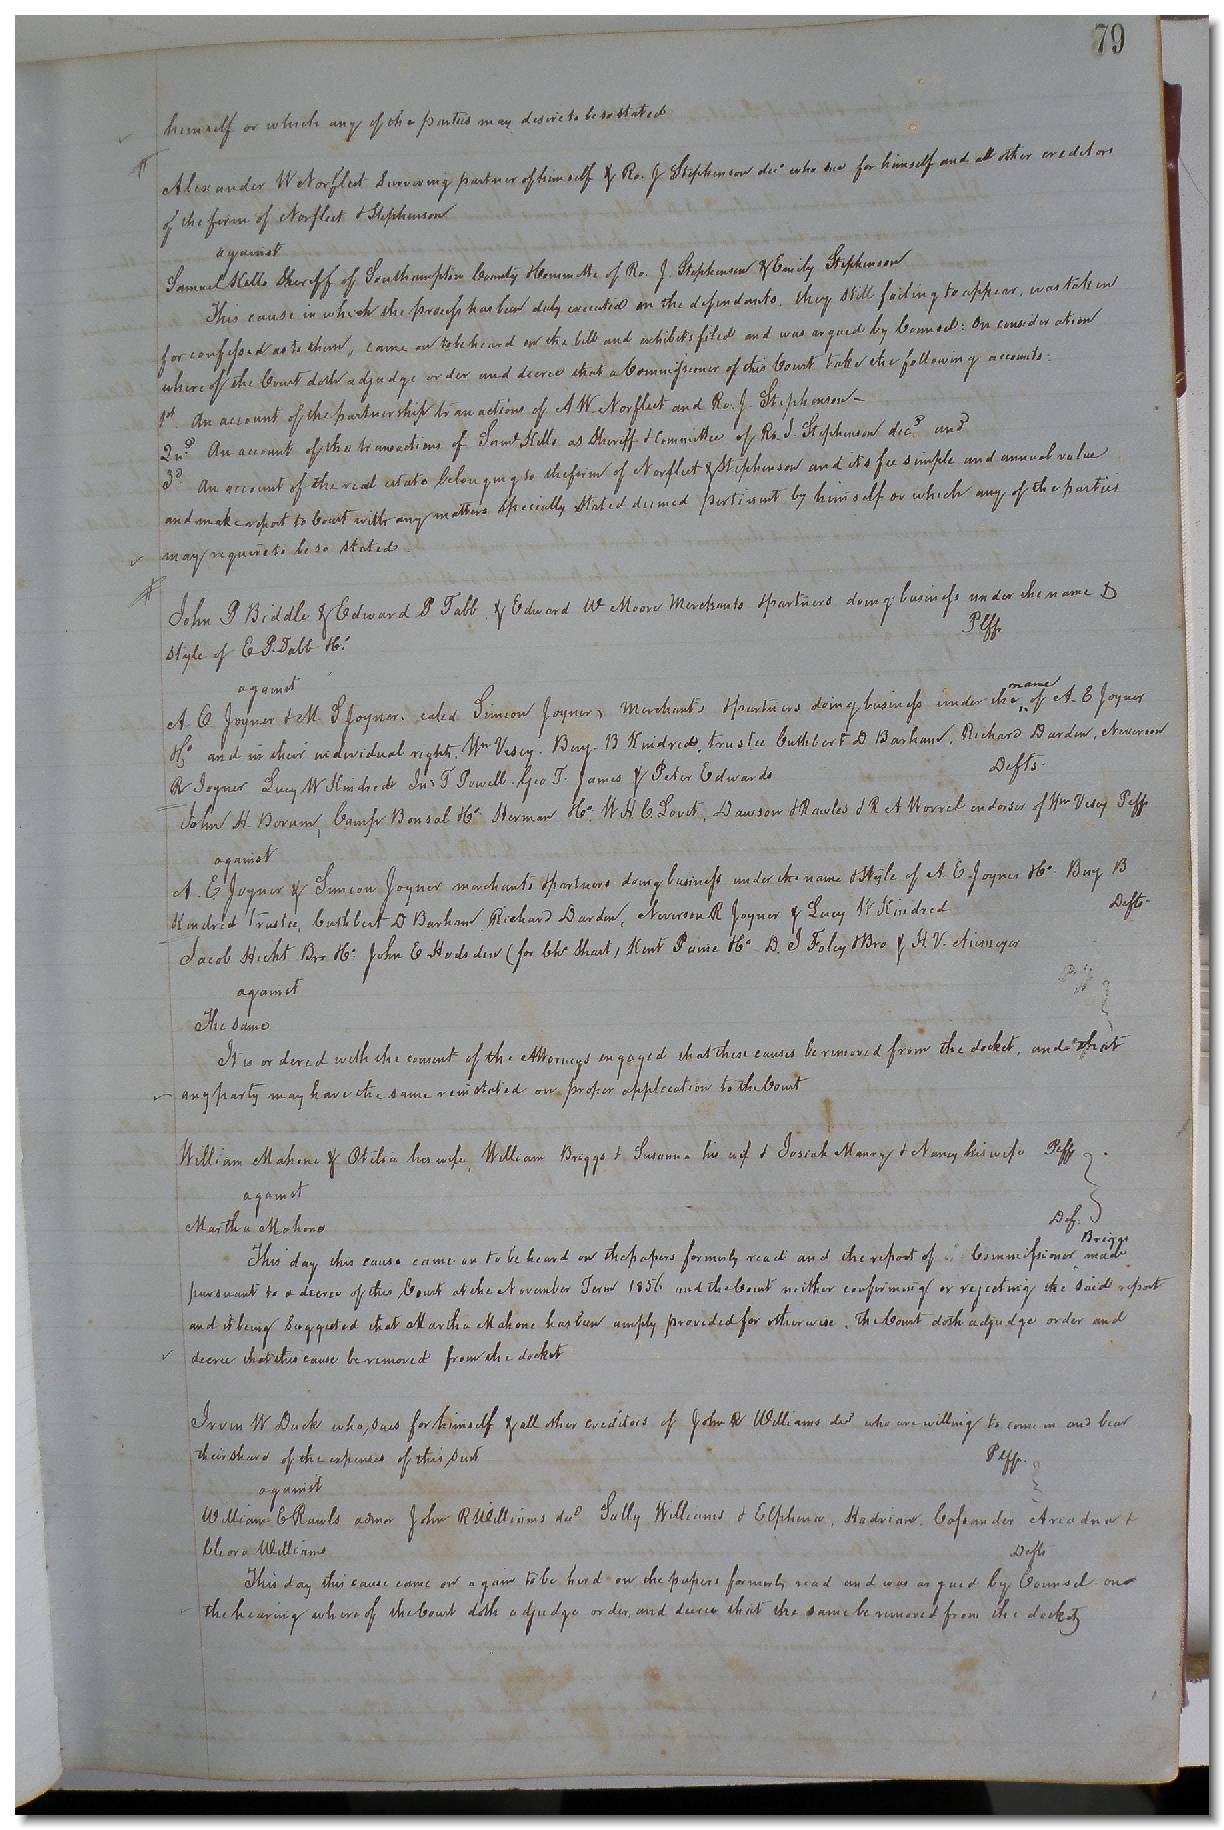 79
himself or which any of the parties may desire to be so stated
Alexander W Norfleet Surviving partner of himself & Ro. J Stephenson decd who sue for himself and all other creditors
of the firm of Norfleet & Stephenson
against
Samuel Kello Sheriff of Southampton County & Committee of Ro. J. Stephenson & Emily Stephenson
This cause in which the process has been duly executed on the defendants, they still failing to appear, was taken
for confessed as to them, came on to be heard on the bill and exhibits filed and was argued by Counsel: On consideration
whereof the Court doth adjudge order and decree that a Commissioner of this Court take the following accounts:
1st An account of the partnership transactions of A W Norfleet and Ro. J. Stephenson
2nd An account of the transactions of Saml Kello as Sheriff & Committee of Ro. J. Stephenson decd and
3d An account of the real estate belonging to the firm of Norfleet & Stephenson and its fee simple and annual value
and make report to Court with any matters specially stated deemed pertinent by himself or which any of the parties
may require to be so stated
John P Biddle & Edward P Tabb & Edward W Moore Merchants & partners doing business under the name &
style of E. P. Tabb & Co. Plffs
against
A E Joyner & M. S Joyner, called Simeon Joyner, Merchants & partners doing business under the name of A. E Joyner
& Co and in their individual rights, Wm Vesey. Benj. B Kindred, trustee Cuthbert D Barham, Richard Darden, Neverson
R Joyner Lucy W Kindred Jno T Powell Geo T. James & Peter Edwards Defts.
John H Borum, Camp Bonsal & Co Herman & Co W H C Lovit, Dawson & Rawles & R A Worrel endorser of Wm Vesey Plffs
against
A. E Joyner & Simeon Joyner merchants & partners doing business under the name & Style of A E Joyner & Co Benj B
Kindred Trustee, Cuthbert D Barham Richard Darden, Neverson R Joyner & Lucy W Kindred Defts
Jacob Hecht Bro & Co John E Hodsden (for Chs Hart) Kent Paine & Co D. J Foley & Bro & H. V. Niemeyer
Plffs
against
The same
It is ordered with the consent of the Attorneys engaged that these causes be removed from the docket, and that
any party may have the same reinstated on proper application to the Court
William Mahone & Otilia his wife, William Briggs & Susanna his wife & Josiah Manry & Nancy his wife Plffs
against
Martha Mahone Def.
This day this cause came on to be heard on the papers formerly read and the report of Commissioner Briggs made
pursuant to a decree of this Court at the November Term 1856 and the Court neither confirming or rejecting the said report
and it being suggested that Martha Mahone has been amply provided for otherwise, the Court doth adjudge order and
decree that this cause be removed from the docket
Irvin W. Duck who sues for himself & all other creditors of John R Williams decd who are willing to come in and bear
their share of the expenses of this suit Plff.
against
William E Rawls admor John R Williams decd Sally Williams & Elphena, Hadrian, Cassander Areadna &
Cleora Williams Defts
This day this cause came on again to be herd on the papers formerly read and was argued by Counsel on
the hearing whereof the Court doth adjudge order, and decree that the same be removed from the docket